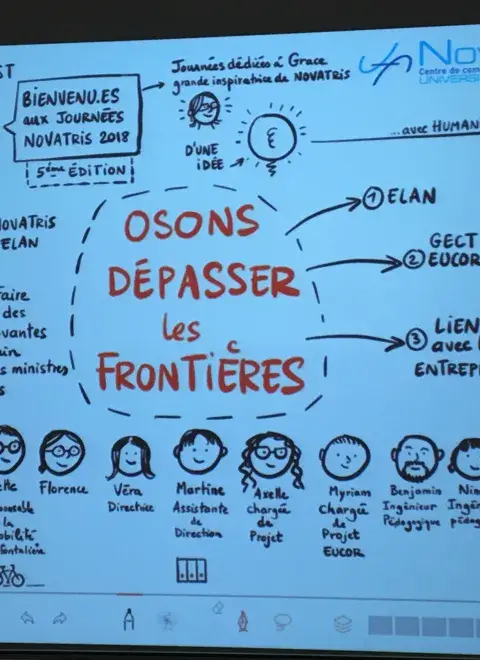 ST
BIENVENU.ES
aux JOURNÉES
NOVATRIS 2018
5ème ÉDITION
Journées dédiées à Grace
grande inspiratrice de NOVATRIS
Nov
Centre de com
UNIVERSI
D'UNE
iDÉE
...avec HUMAN
NOVATRIS
ELAN
faire
des
vantes
ain
s ministres
s
OSONS
DÉPASSER
les
FRONTIÈRES
1 ELAN
GECT
2 EUCOR
LIEN
3 avec l
ENTREP
ette
ponsable
la
obilité
ontalière
Florence
Véra
Directrice
Martine
Assistante
de
Direction
Axelle
chargée
de
Projet
Myriam
Chargée
de
Projet
EUCOR
Benjamin
Ingénieur
Pédagogique
Nin
Ingén
pédago